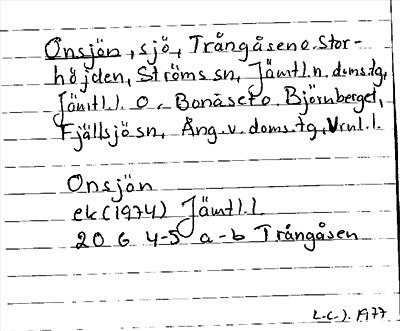 Onsjön, sjö, Trångåsen o. Stor-
höjden, Ströms sn, Jämtl. n. doms. tg,
Jämtl. l. o. Bonäset o. Björnberget,
Fjällsjö sn, Ång. v. doms. tg, Vrnl. l.
Onsjön
ek (1974) Jämtl. l
20 G 4-5 a-b Trångåsen
1977